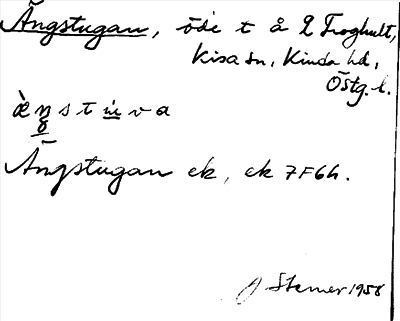 Ängstugan, öde t å 2 Froghult,
Kisa sn, Kinda hd,
Östg. l.
Ängstugan ek, ek 7F6h.
Stemer 1958